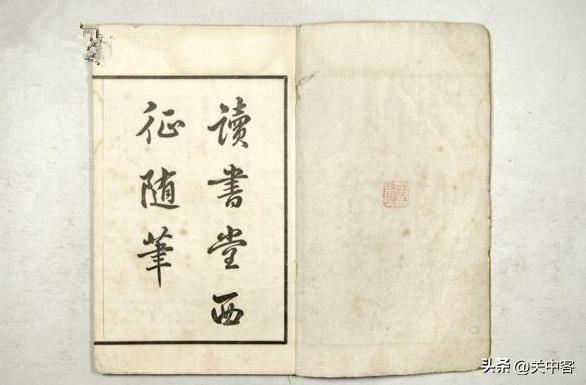 讀書堂西
征随筆
头条 @关中客